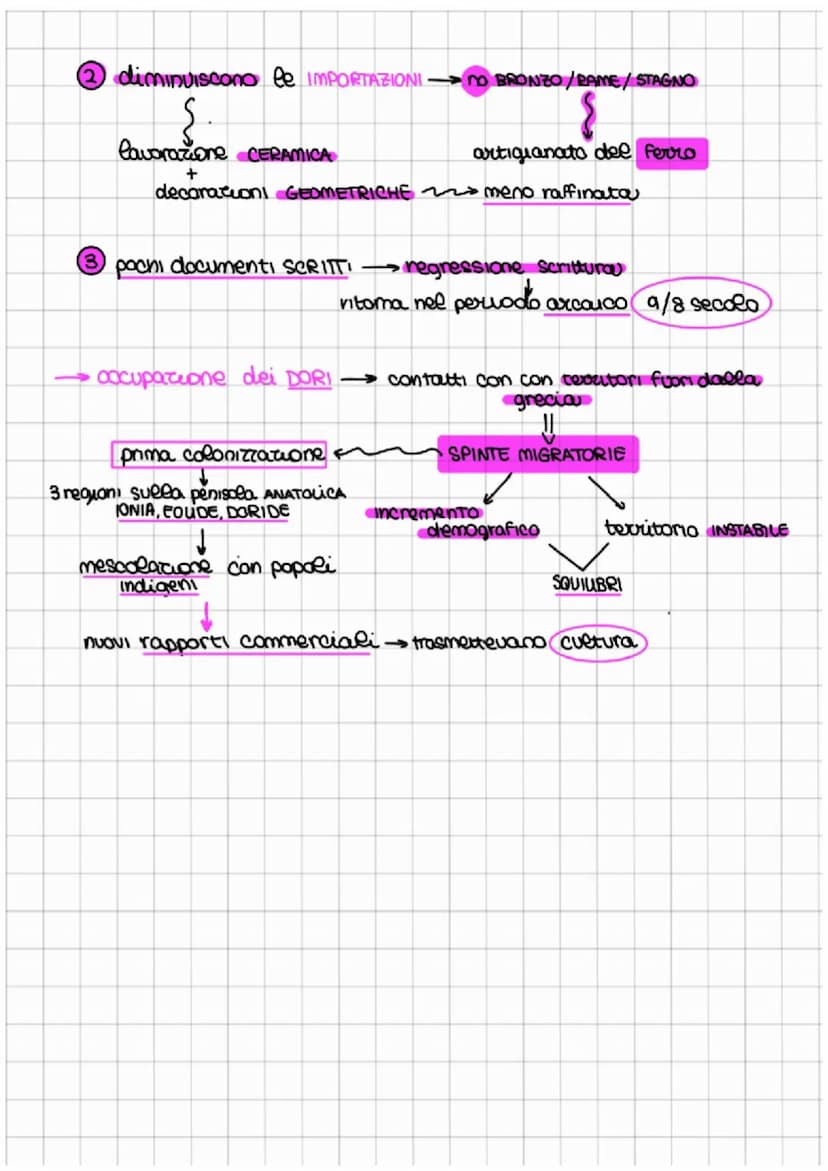 ② diminuiscono le IMPORTAZIONI → no BRONZO / RAME / STAGNO
lavorazione CERAMICA artigianato del ferro
+
decorazioni GEOMETRICHE → meno raffinata
③ pochi documenti SCRITTI → regressione scrittura
ritorna nel periodo arcaico 9/8 secolo
→ occupazione dei DORI → contatti con con territori fuori dalla
grecia
prima colonizzazione ← SPINTE MIGRATORIE
3 regioni sulla penisola ANATOLICA
IONIA, EOLIDE, DORIDE
incremento
demografico territorio INSTABILE
mescolazione con popoli
indigeni
SQUILIBRI
nuovi rapporti commerciali → trasmettevano cultura